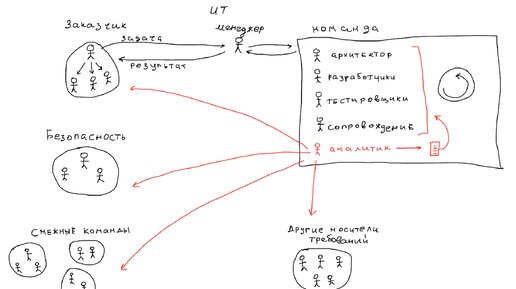 ИТ
Заказчик
менеджер
команда
задача
результат
архитектор
разработчики
тестировщики
сопровождение
аналитик
Безопасность
Смежные команды
Другие носители
требований